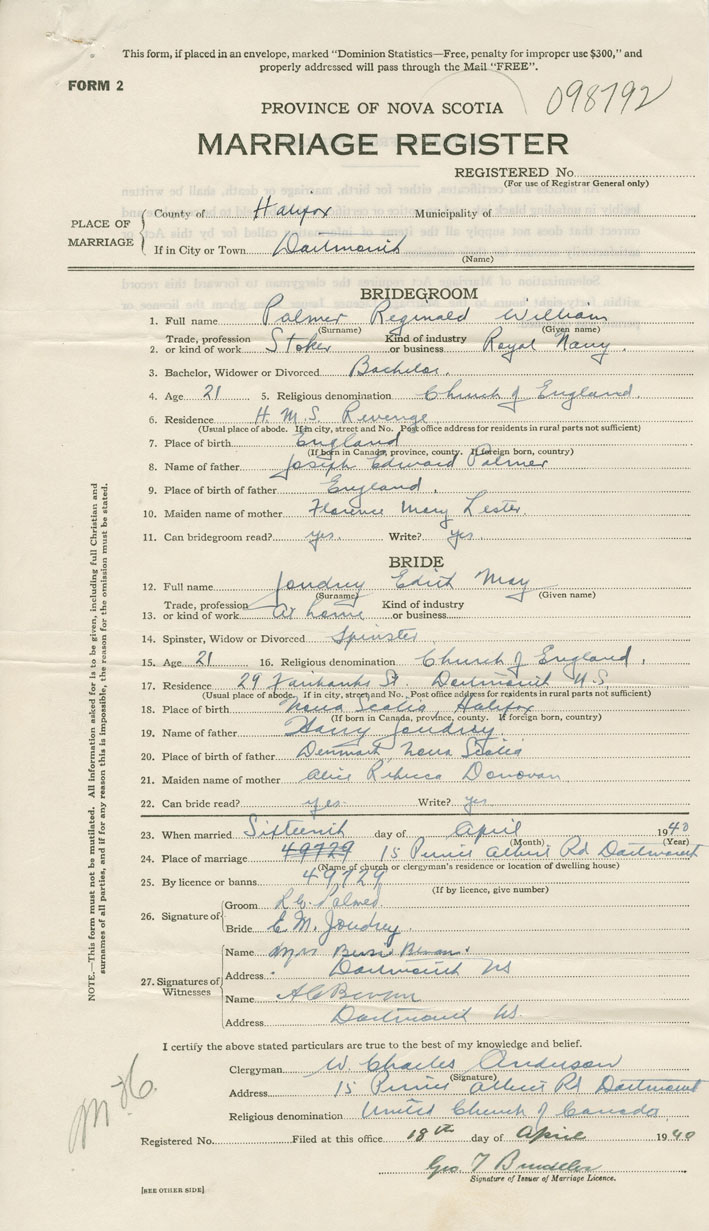 This form, if placed in an envelope, marked "Dominion Statistics—Free, penalty for improper use $300," and
properly addressed will pass through the Mail "FREE".
FORM 2
098792
PROVINCE OF NOVA SCOTIA
MARRIAGE REGISTER
REGISTERED No.
(For use of Registrar General only)
PLACE OF MARRIAGE
County of Halifax Municipality of
If in City or Town Dartmouth
(Name)
BRIDEGROOM
1. Full name Palmer Reginald William
(Surname) (Given name)
2. Trade, profession or kind of work Stoker Kind of industry or business Royal Navy.
3. Bachelor, Widower or Divorced Bachelor.
4. Age 21 5. Religious denomination Church of England.
6. Residence H.M.S. Revenge
(Usual place of abode. If in city, street and No. Post office address for residents in rural parts not sufficient)
7. Place of birth England
(If born in Canada, province, county. If foreign born, country)
8. Name of father Joseph Edward Palmer
9. Place of birth of father England.
10. Maiden name of mother Florence Mary Lester.
11. Can bridegroom read? yes. Write? yes.
BRIDE
12. Full name Joudrey Edith May
(Surname) (Given name)
13. Trade, profession or kind of work At home Kind of industry or business
14. Spinster, Widow or Divorced Spinster.
15. Age 21 16. Religious denomination Church of England.
17. Residence 29 Fairbanks St. Dartmouth N.S.
(Usual place of abode. If in city, street and No. Post office address for residents in rural parts not sufficient)
18. Place of birth Nova Scotia, Halifax
(If born in Canada, province, county. If foreign born, country)
19. Name of father Harry Joudrey.
20. Place of birth of father Denmark Nova Scotia
21. Maiden name of mother Alice Rebecca Donovan
22. Can bride read? yes. Write? yes
23. When married Sixteenth day of April 1940
(Month) (Year)
24. Place of marriage 49729 15 Prince Albert Rd Dartmouth
(Name of church or clergyman's residence or location of dwelling house)
25. By licence or banns 49729
(If by licence, give number)
26. Signature of Groom R.W. Palmer
Bride E.M. Joudrey
27. Signatures of Witnesses
Name Mrs Bevan
Address Dartmouth NS
Name A C Bevan
Address Dartmouth NS.
I certify the above stated particulars are true to the best of my knowledge and belief.
Clergyman W. Charles Anderson
(Signature)
Address 15 Prince Albert Rd Dartmouth
Religious denomination United Church of Canada.
Registered No. Filed at this office 18th day of April 1940
Geo. T
Signature of Issuer of Marriage Licence.
[SEE OTHER SIDE]
NOTE.—This form must not be mutilated. All information asked for is to be given, including full Christian and
surnames of all parties, and if for any reason this is impossible, the reason for the omission must be stated.